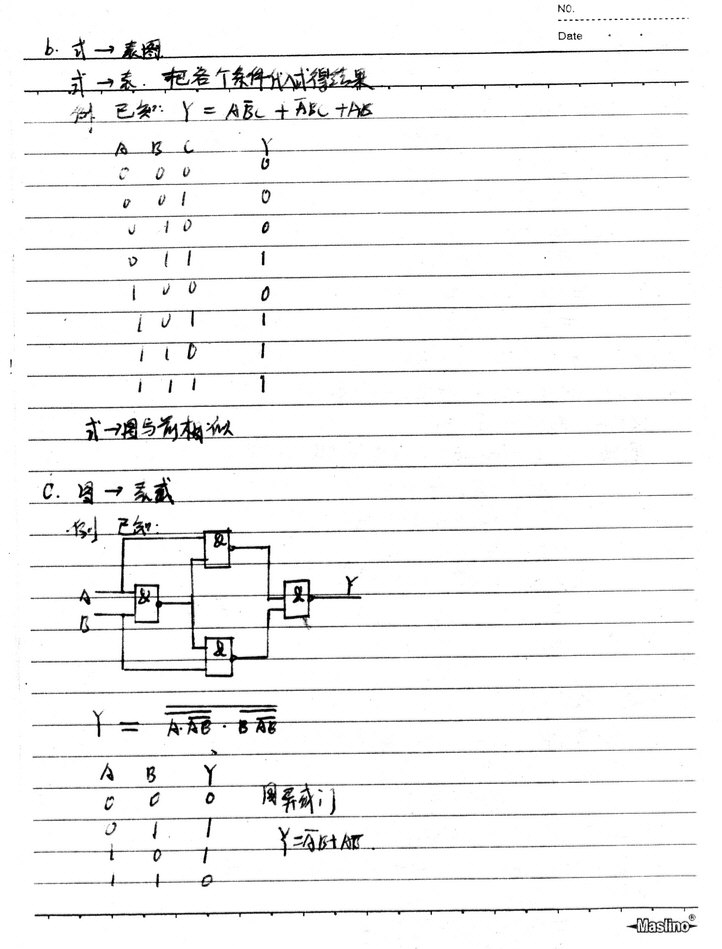 NO.
Date
b. 式→表图
式→表. 把各个条件代入式得结果
例 已知: Y = AB̅C + A̅BC + AB
A B C Y
0 0 0 0
0 0 1 0
0 1 0 0
0 1 1 1
1 0 0 0
1 0 1 1
1 1 0 1
1 1 1 1
式→图与前相似
C. 图→表式
例 已知:
&
A & & Y
B
&
Y = \overline{\overline{A·\overline{AB}} · \overline{B \overline{AB}}}
A B Y
0 0 0 图异或门
0 1 1 Y=A̅B+AB̅.
1 0 1
1 1 0
Maslino®